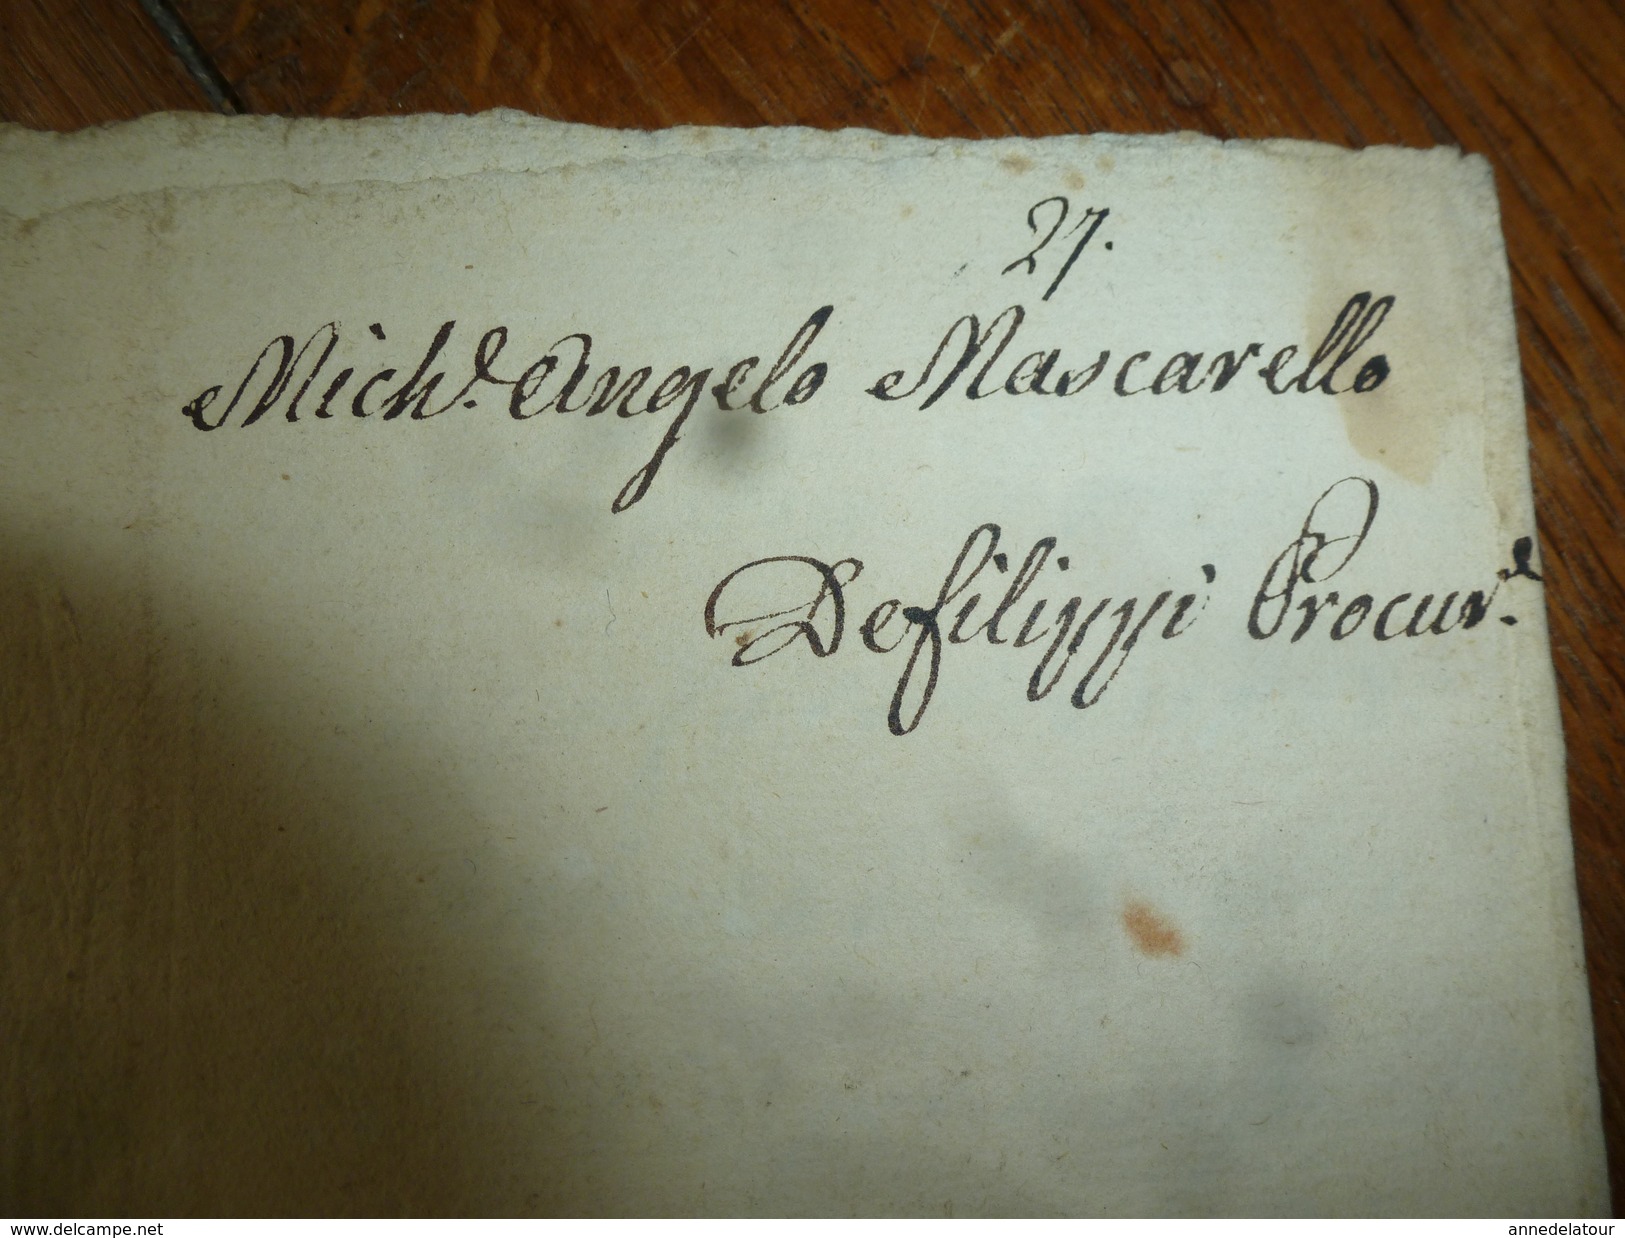 27.
Mich.l Angelo Mascarello
Defilippi Procur.e
www.delcampe.net
annedelatour